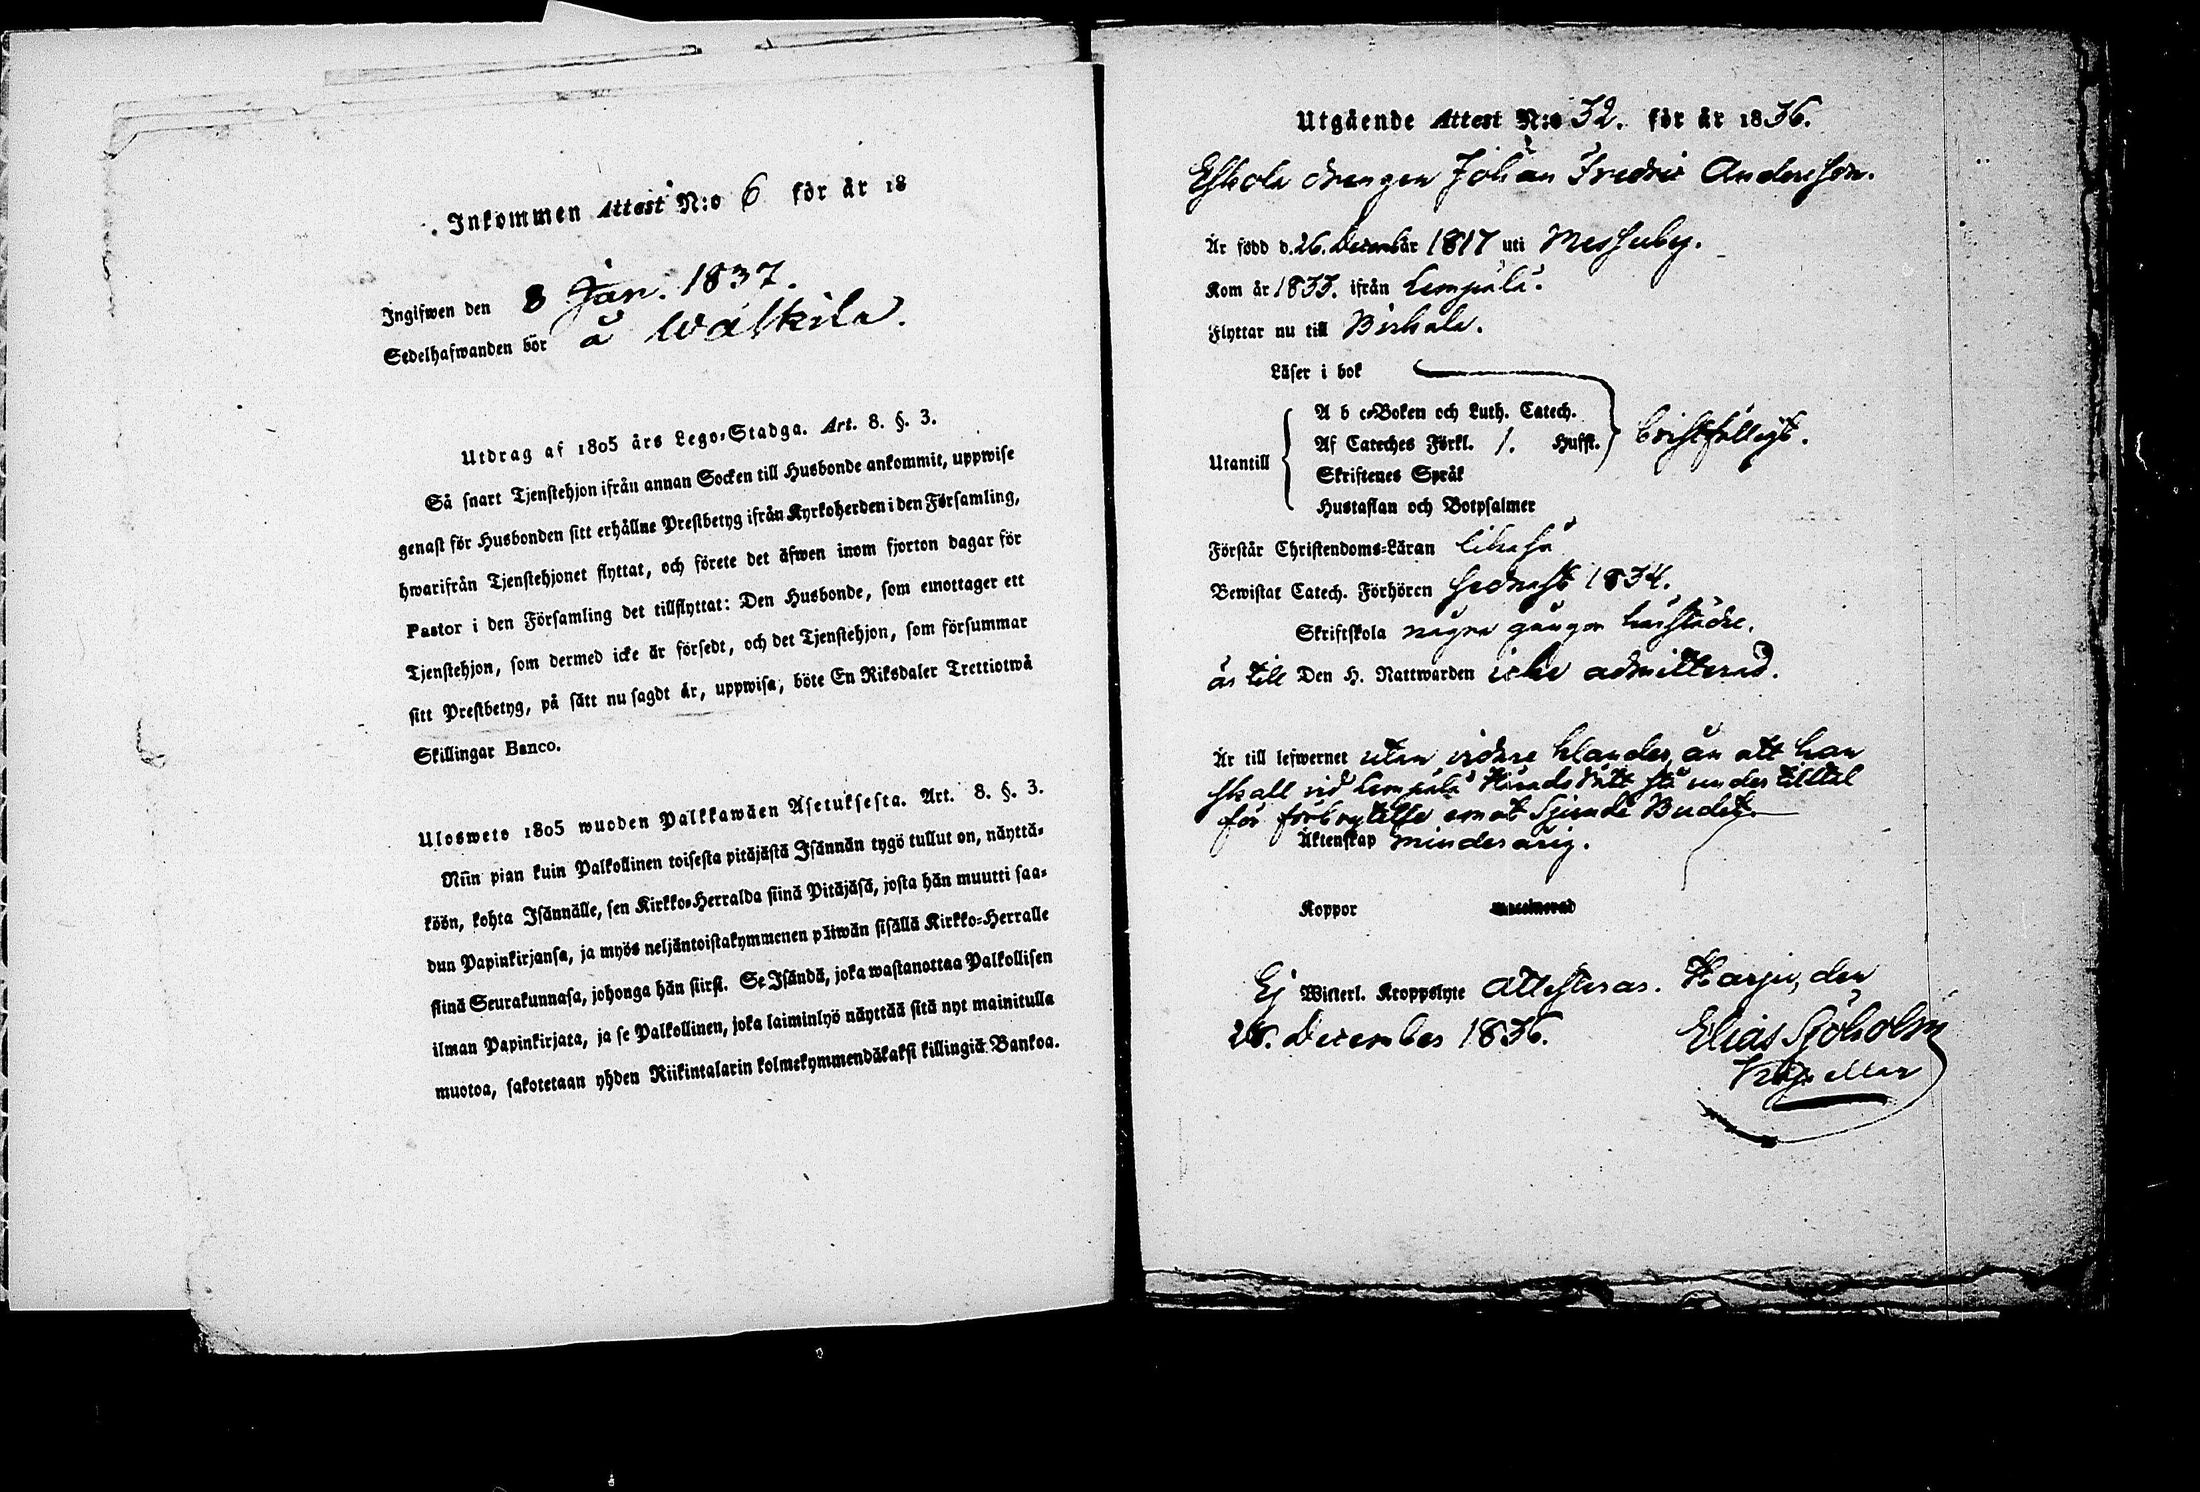 Inkommen Attest N:o 6 för år 18
Ingifwen den 8 Jan. 1837.
Sedelhafwanden bör å Wälkilä.
Utdrag af 1805 års Lego-Stadga. Art. 8. §. 3.
Så snart Tjenstehjon ifrån annan Socken till Husbonde ankommit, uppwise
genast för Husbonden sitt erhållne Prestbetyg ifrån Kyrkoherden i den Församling,
hwarifrån Tjenstehjonet flyttat, och förete det äfwen inom fjorton dagar för
Pastor i den Församling det tillflyttat: Den Husbonde, som emottager ett
Tjenstehjon, som dermed icke är försedt, och det Tjenstehjon, som försummar
sitt Prestbetyg, på sätt nu sagdt är, uppwisa, böte En Riksdaler Trettiotwå
Skillingar Banco.
Ulosweto 1805 wuoden Palkkawäen Asetuksesta. Art. 8. §. 3.
Niin pian kuin Palkollinen toisesta pitäjästä Isännän tygö tullut on, näyttä-
köön, kohta Isännälle, sen Kirkko-Herralda siinä Pitäjäsä, josta hän muutti saa-
dun Papinkirjansa, ja myös neljäntoistakymmenen päiwän sisällä Kirkko-Herralle
siinä Seurakunnasa, johonga hän siirst. Se Isändä, joka wastanottaa Palkollisen
ilman Papinkirjata, ja se Palkollinen, joka laiminlyö näyttää sitä nyt mainitulla
muotoa, sakotetaan yhden Riikintalarin kolmekymmendäkaksi killingiä Bankoa.
Utgående Attest N:o 32. för år 1836.
Eskola drengen Johan Fredric Andersson.
Är född d. 26. Decembr år 1817 uti Messuby.
Kom år 1833. ifrån Lempälä.
Flyttar nu till Birkala.
Läser i bok
Utantill
A b c-Boken och Luth. Catech.
Af Cateches Förkl. 1. Hufst. bristfälligt.
Skriftenes Språk
Hustaflan och Botpsalmer
Förstår Christendoms-Läran likaså
Bewistat Catech. Förhören sednast 1834.
Skriftskola några gånger härstädes.
är till Den H. Nattwarden icke admitterad.
Är till lefwernet utan vidare klander, än att han
skall vid Lempälä Häradsrätt stå under tilltal
för förbrytelse emot Sjunde Budet.
Äktenskap minderårig.
Koppor
Ej Witterl. Kroppslyte attesteras. Harju, den
28. December 1836.
Elias Sjöholm
Kapellan